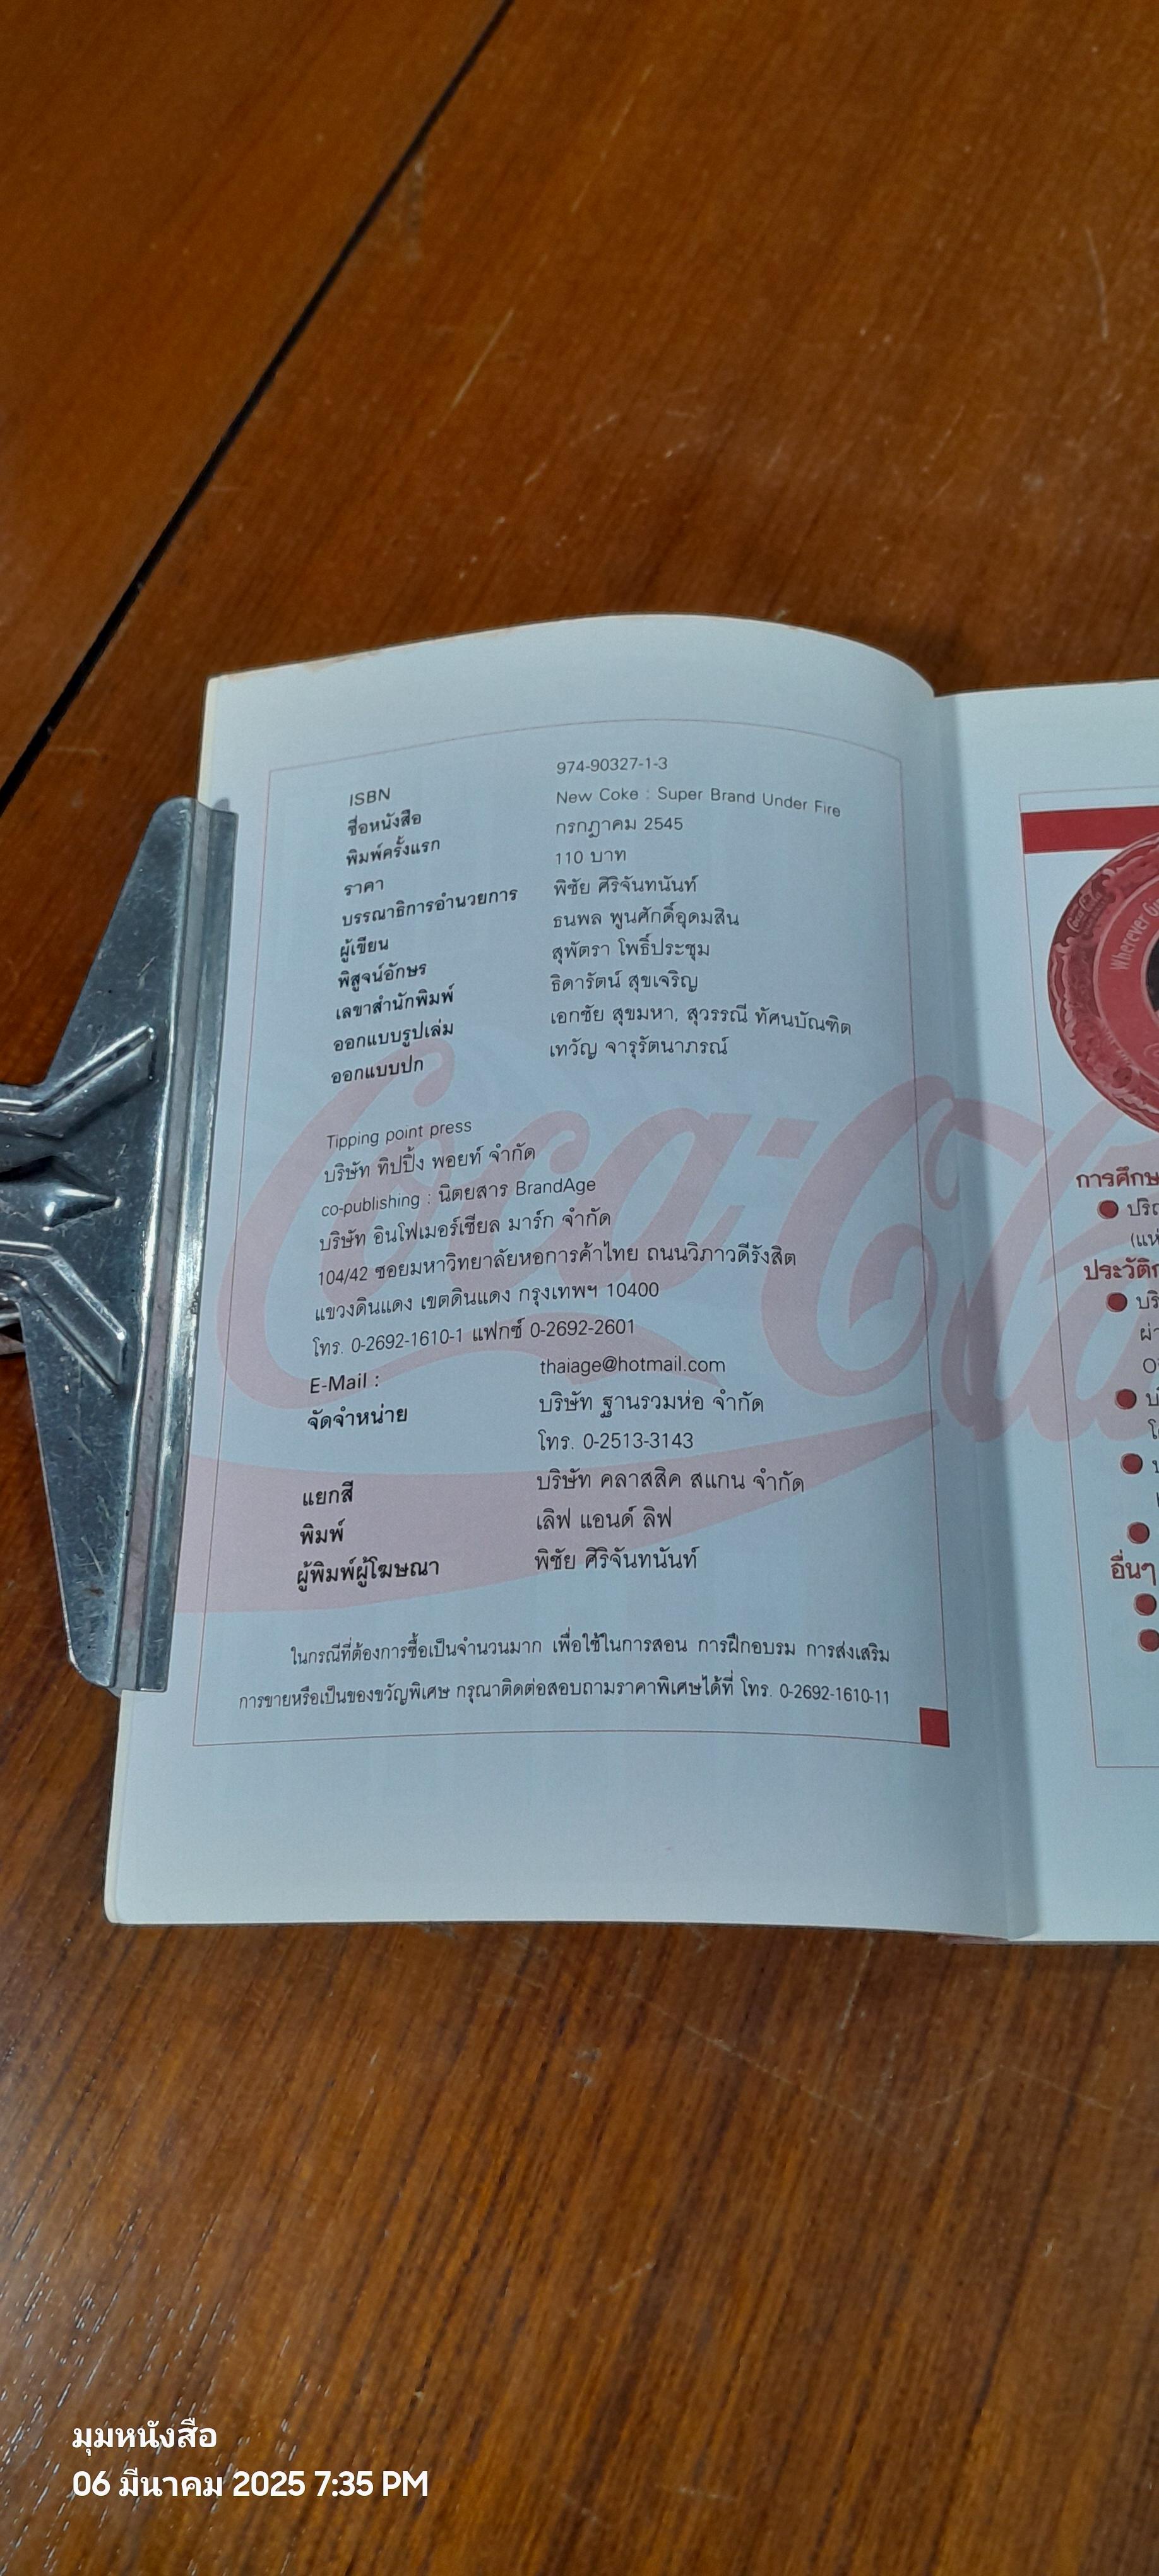 ISBN 974-90327-1-3
ชื่อหนังสือ New Coke : Super Brand Under Fire
พิมพ์ครั้งแรก กรกฎาคม 2545
ราคา 110 บาท
บรรณาธิการอำนวยการ พิชัย ศิริจันทนันท์
ผู้เขียน ธนพล พูนศักดิ์อุดมสิน
พิสูจน์อักษร สุพัตรา โพธิ์ประชุม
เลขาสำนักพิมพ์ ธิดารัตน์ สุขเจริญ
ออกแบบรูปเล่ม เอกชัย สุขมหา, สุวรรณี ทัศนบัณฑิต
ออกแบบปก เทวัญ จารุรัตนาภรณ์
Tipping point press
บริษัท ทิปปิ้ง พอยท์ จำกัด
co-publishing : นิตยสาร BrandAge
บริษัท อินโฟเมอร์เชียล มาร์ก จำกัด
104/42 ซอยมหาวิทยาลัยหอการค้าไทย ถนนวิภาวดีรังสิต
แขวงดินแดง เขตดินแดง กรุงเทพฯ 10400
โทร. 0-2692-1610-1 แฟกซ์ 0-2692-2601
E-Mail : thaiage@hotmail.com
จัดจำหน่าย บริษัท ฐานรวมห่อ จำกัด
โทร. 0-2513-3143
แยกสี บริษัท คลาสสิค สแกน จำกัด
พิมพ์ เลิฟ แอนด์ ลิฟ
ผู้พิมพ์ผู้โฆษณา พิชัย ศิริจันทนันท์
ในกรณีที่ต้องการซื้อเป็นจำนวนมาก เพื่อใช้ในการสอน การฝึกอบรม การส่งเสริม
การขายหรือเป็นของขวัญพิเศษ กรุณาติดต่อสอบถามราคาพิเศษได้ที่ โทร. 0-2692-1610-11
Coca-Cola
Wherever
อื่นๆ
มุมหนังสือ
06 มีนาคม 2025 7:35 PM